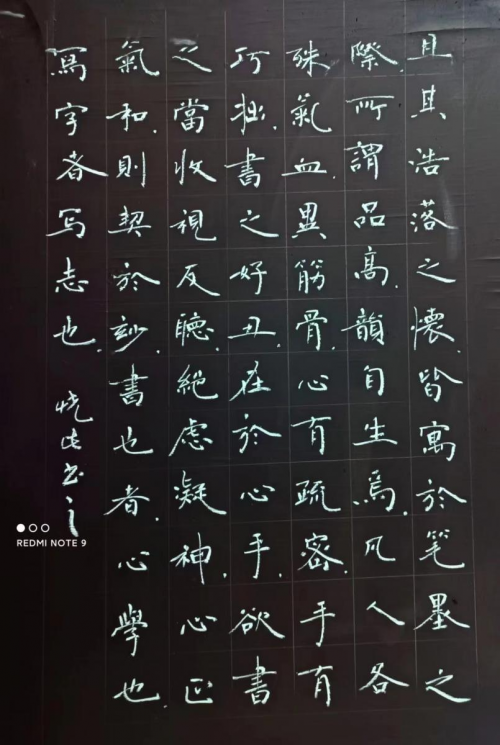 且其浩落之懷.皆寓於笔墨之
際.所謂品高.韻自生焉.凡人各
殊氣血.異筋骨.心有疏密.手有
巧拙.書之好丑在於心手.欲書
之當收視反聽.絕慮凝神.心正
氣和.則契於玅.書也者.心學也.
寫字者写志也.
REDMI NOTE 9